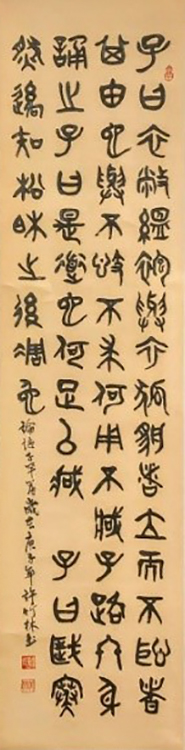 子曰衣敝縕袍與衣狐貉者立而不恥者
其由也與不忮不求何用不臧子路終身
誦之子曰是道也何足以臧 子曰歲寒
然後知松柏之後凋也 論語子罕篇歲在庚子年許竹林書